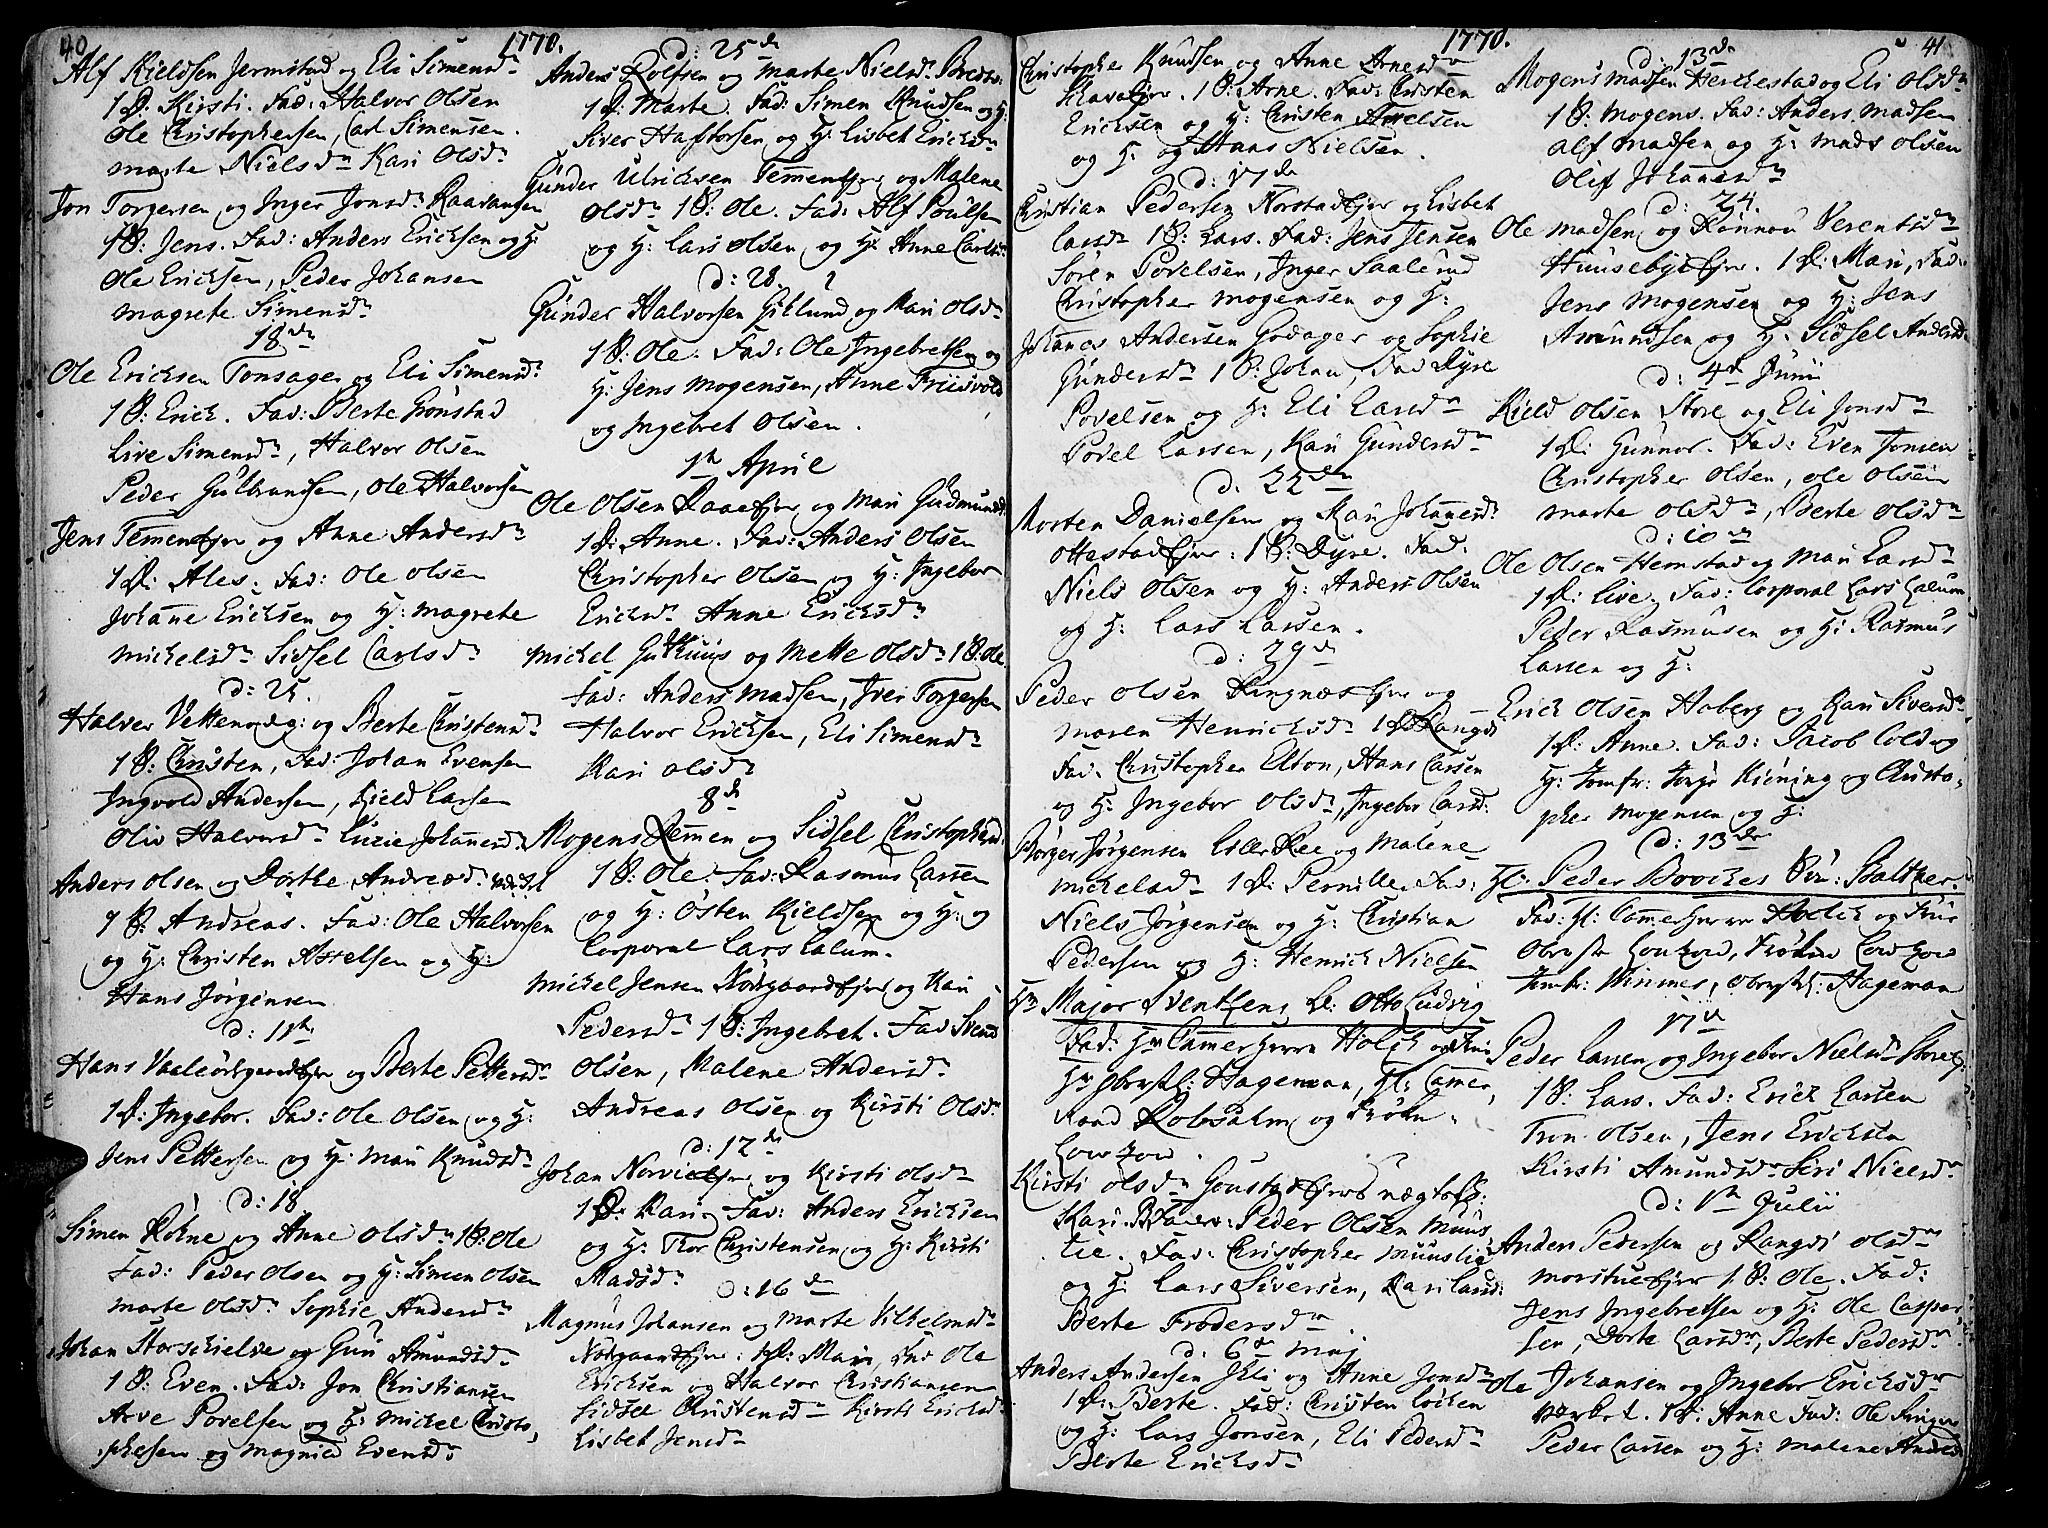 40
1770.
Alf Kieldsen Jermstad og Eli Simensdr
1 D: Kirsti. Fad: Halvor Olsen
Ole Christophersen, Carl Simensen.
marte Nielsdr Kari Olsdr
Jon Torgersen og Inger Jonsdr Raavangen
1 S: Jens. Fad: Anders Ericksen og H:
Ole Ericksen, Peder Johansen
magrete Simensdr
18de
Ole Ericksen Tonsager og Eli Simensdr
1 S: Erick. Fad: Berte Grønstad
Live Simensdr, Halvor Olsen
Peder Gulbrandsen, Ole Halvorsen
Jens Temen Ejer og Anne Andersdr
1 D: Ales. Fad: Ole Olsen
Johanne Ericksen og H: magrete
michelsdr Sidsel Carlsdr
d: 25.
Halver Vetten og Berte Christensdr
1 S: Christen, Fad: Johan Evensen
Ingvold Andersen, Kield Larsen
Oliv Halvorsdr Lucie Johannesdr
Anders Olsen og Dorthe Andreasdr
1 S: Andreas. Fad: Ole Halvorsen
og H: Christen Axelsen og H:
Hans Jørgensen
d: 11te
Hans og Berte Pettersdr
1 D: Ingebor. Fad: Ole Olsen og H:
Jens Pettersen og H: Mari Knudsdr
d: 18
Simen Røhne og Anne Olsdr 1 S: Ole
Fad: Peder Olsen og H: Simen Olsen
marte Olsdr Sophie Andersdr
Johan Storschielve og Guri Amundsdr
1 S: Even. Fad: Jon Christiansen
Arve Povelsen og H: Michel Christo,
phersen og Magnild Evensdr
d: 25de
Anders Rolfsen og Marte Nielsdr
1 D: Marte. Fad: Simen Knudsen og H:
Siver Haftorsen og H: Lisbet Ericksdr
Gunder Ulricksen og Malene
Olsdr 1 S: Ole. Fad: Alf Poulsen
og H: Lars Olsen og H: Anne Carlsdr
d: 28.
Gunder Halvorsen Giklund og Mari Olsdr
1 S: Ole. Fad: Ole Ingebretsen og
H: Jens Mogensen, Anne Friisvold
og Ingebret Olsen.
1te April
Ole Olsen og Mari Gudmundsdr
1 D: Anne. Fad: Anders Olsen
Christopher Olsen og H: Ingebor
Ericksdr Anne Ericksdr
Michel og Mette Olsdr 1 S: Ole
Fad: Anders Madsen, Iver Torgersen
Halvor Ericksen, Eli Simensdr
Kari Olsdr
8de
Mogens Remmen og Sidsel Christophersdr
1 S: Ole. Fad: Rasmus Larsen
og H: Østen Kieldsen og H: og
Corporal Lars Lalum.
Michel Jensen og Kari
Pedersdr 1 S: Ingebret. Fad Svend
Olsen, Malene Andersdr
Andreas Olsen og Kirsti Olsdr
d: 12de
Johan og Kirsti Olsdr
1 D: Kari. Fad: Anders Ericksen
og H: Thor Christensen og H: Kirsti
Madsdr
d: 16de
Magnus Johansen og Marte Vilhelmsdr
1 D: Mari, Fad: Ole
Ericksen og Halvor Christiansen
Sidsel Christensdr Kirsti Ericksdr
Lisbet Jensdr
1770.
41
Christopher Knudsen og Anne Arnesdr
1 S: Arne. Fad: Christen
Ericksen og H: Christen Axelsen
og H: og Hans Nielsen.
d: 17de
Christian Pedersen og Lisbet
Larsdr 1 S: Lars. Fad: Jens Jensen
Søren Povelsen, Inger Saalerud
Christopher Mogensen og H:
Johannes Andersen Godager og Sophie
Gundersdr 1 S: Johan, Fad Dyre
Povelsen og H: Eli Larsdr
Povel Larsen, Kari Gundersdr
d: 22de
Morten Danielsen og Kari Johannesdr
Ottestad Ejer: 1 S: Dyre. Fad:
Niels Olsen og H: Anders Olsen
og H: Lars Larsen.
d: 29de
Peder Olsen Ringnæs Ejer og
Maren Henricksdr 1 D Rangdi
Fad: Christopher Elton, Hans Larsen
og H: Ingebor Olsdr, Ingebor Larsdr
Børger Jørgensen Lille Ree og Malene
Michelsdr 1 D: Pernille. Fad:
Niels Jørgensen og H: Christian
Pedersen og H: Henrich Nielsen
Hr Major Sventzens S: Otto Ludvig
Fad: Hr Camerherre Holck og Frue
Hr Obrstl: Hageman, Hr: Camer,
Raad Robsahm og Frøkn
Lowzow.
Kirsti Olsdr
Kari. B Fader: Peder Olsen Muus
lie. Fad: Christopher Muuslie
og H: Lars Siversen, Kari
Berte Frodersdr
d: 6de Maj
Anders Andersen Ihli og Anne Jonsdr
1 D: Berte. Fad: Christen Løcken
og H: Lars Jonsen, Eli Pedersdr
Berte Ericksdr
d: 13de
Mogens Madsen Herckestad og Eli Olsdr
1 S: Mogens. Fad: Anders Madsen
Alf Madsen og H: Mads Olsen
Oliv Johannesdr
d: 24.
Ole Madsen og Rønnou Berentsdr
Huusebye Ejer. 1 D: Mari, Fad:
Jens Mogensen og H: Jens
Amundsen og H: Sidsel Andersdr
d: 4de Junii
Kield Olsen Store og Eli Jonsdr
1 D: Gunnor. Fad: Even Jonsen
Christopher Olsen, Ole Olsen
Marte Olsdr, Berte Olsdr
d: 10de
Ole Olsen Hemstad og Mari Larsdr
1 D: Live. Fad: Corporal Lars Lalum
Peder Rasmusen og H: Rasmus
Larsen og H:
Erick Olsen Haberg og Kari Siversdr
1 D: Anne. Fad: Jacob Cold og
H: Jomfr: Kiøning og Christo,
pher Mogensen og H:
d: 13de
Hr: Peder Balther.
Fad: Hr: Camerherre Holck og Frue
Obrstl Lowzow, Frøken Lowzow
Jomfr: Winmer, Obrstl: Hageman
17de
Peder Larsen og Ingebor Nielsdr
1 S: Lars. Fad: Erick Larsen
Tron Olsen, Jens Ericksen
Kirsti Amundsdr Siri Nielsdr
d: 1te Julii
Anders Pedersen og Rangdi Olsdr
Morstue Ejer 1 S: Ole. Fad:
Jens Ingebretsen og H: Ole Casper,
sen, Dorte Larsdr, Berte Pedersdr
Ole Johansen og Ingebor Ericksdr
1 D: Anne Fad: Ole
Peder Larsen og H: Malene Andersdr